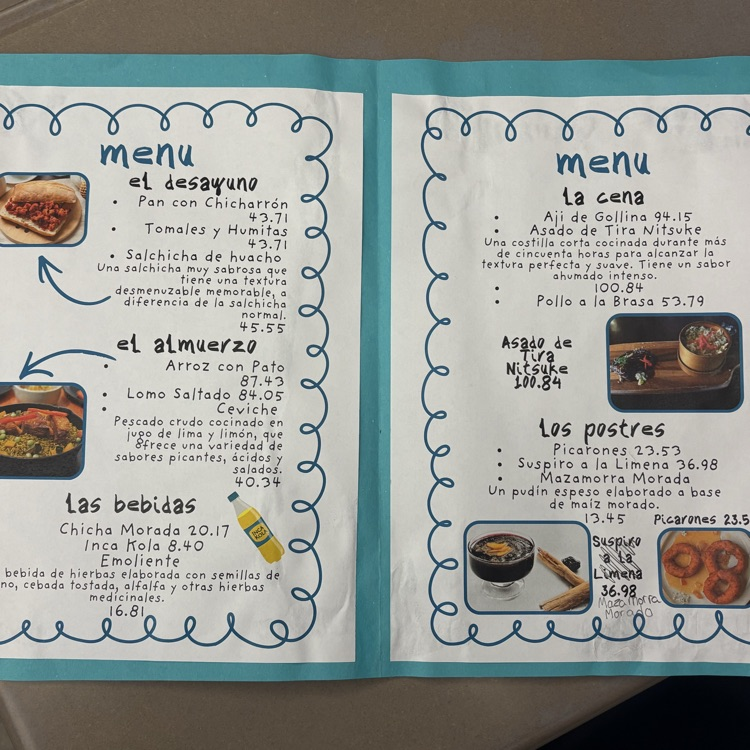 menu
el desayuno
• Pan con Chicharrón
43.71
• Tomales y Humitas
43.71
• Salchicha de huacho
Una salchicha muy sabrosa que
tiene una textura
desmenuzable memorable, a
diferencia de la salchicha
normal.
45.55
el almuerzo
• Arroz con Pato
87.43
• Lomo Saltado 84.05
• Ceviche
Pescado crudo cocinado en
jugo de lima y limón, que
ofrece una variedad de
sabores picantes, ácidos y
salados.
40.34
las bebidas
Chicha Morada 20.17
Inca Kola 8.40
Emoliente
bebida de hierbas elaborada con semillas de
no, cebada tostada, alfalfa y otras hierbas
medicinales.
16.81
INCA
KOLA
menu
la cena
• Aji de Gollina 94.15
• Asado de Tira Nitsuke
Una costilla corta cocinada durante más
de cincuenta horas para alcanzar la
textura perfecta y suave. Tiene un sabor
ahumado intenso.
• 100.84
• Pollo a la Brasa 53.79
Asado de
Tira
Nitsuke
100.84
los postres
• Picarones 23.53
• Suspiro a la Limena 36.98
• Mazamorra Morada
Un pudín espeso elaborado a base
de maíz morado.
13.45
Picarones 23.5
Suspiro
a la
Limena
36.98
Mazamorra
Morado